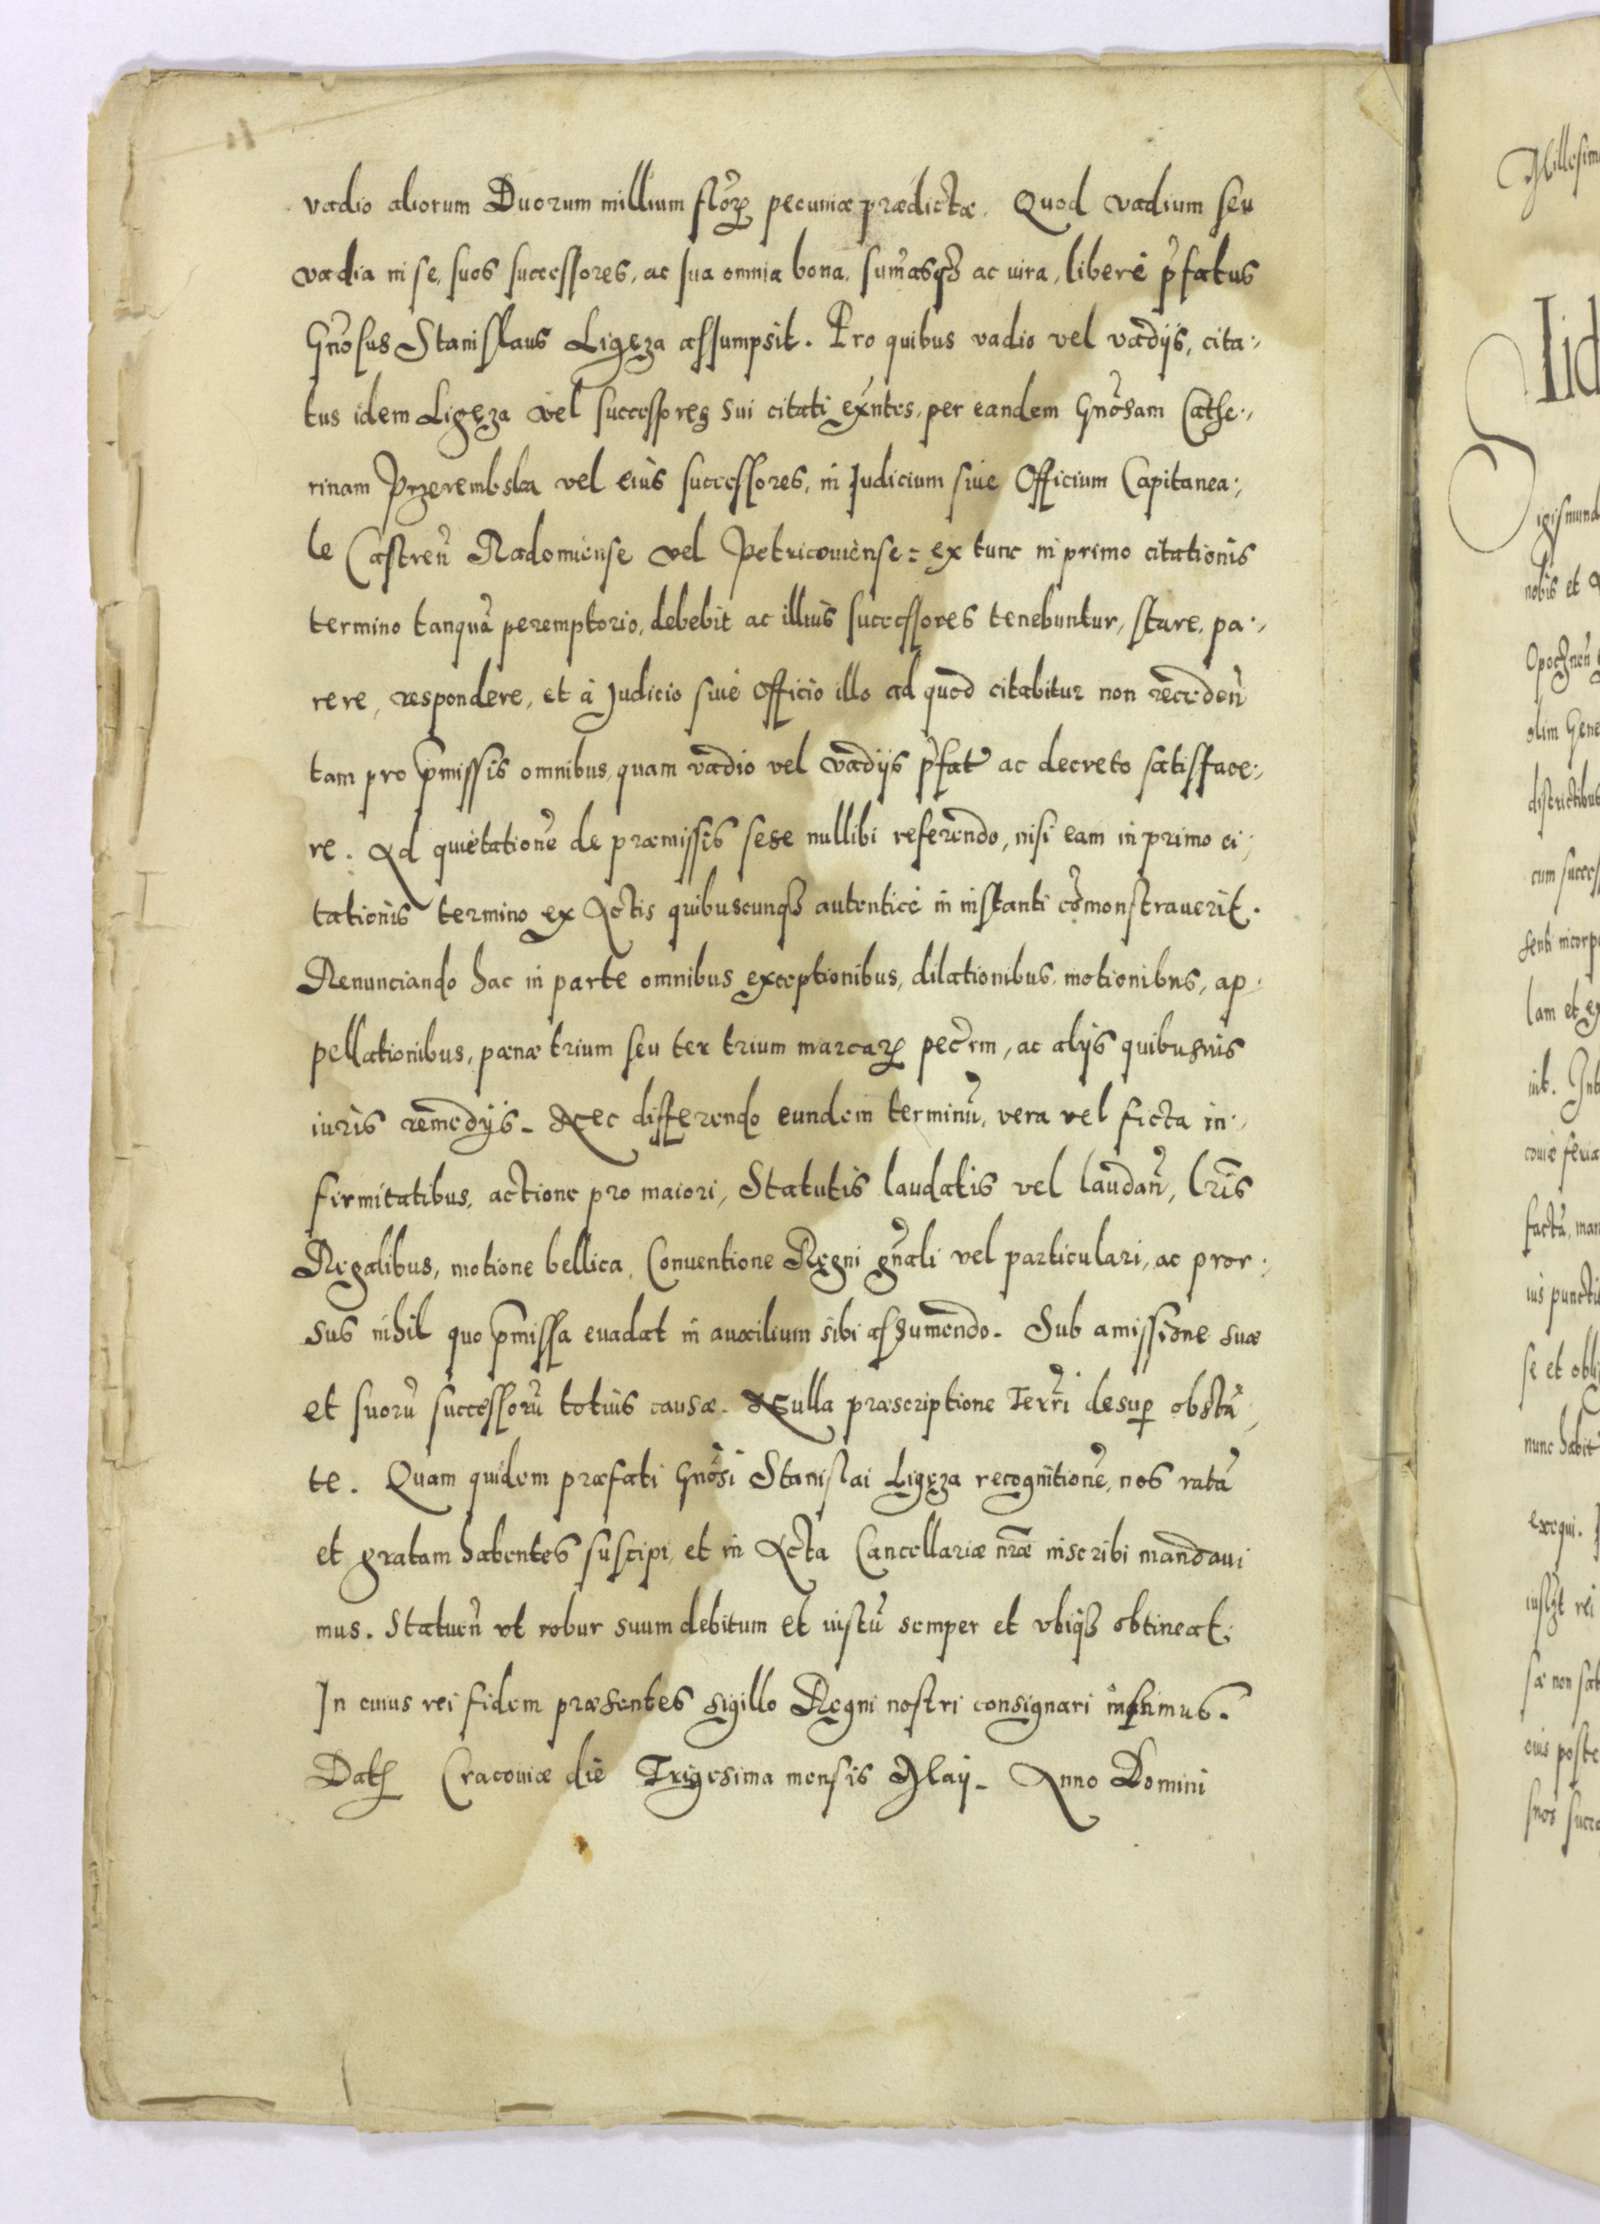 vadio aliorum Duorum millium florꝝ pecuniæ prædictæ. Quod vadium seu
vadia in se, suos successores, ac sua omnia bona, sum̃asqꝫ ac iura, liberè p̃fatus
Gño͂sus Stanislaus Ligęza assumpsit. Pro quibus vadio vel vadijs, cita-
tus idem Ligęza vel successores sui citati exñtes, per eandem Gño͂sam Cathe-
rinam Przerembska vel eiùs successores, in Judicium siuè Officium Capitanea-
le Castreñ Radomiense vel Petricouiènse: ex tunc in primo citationis
termino tanquã peremptorio, debebit ac illiùs successores tenebuntur, stare, pa-
rere, respondere, et à Judicio siuè Officio illo ad quod citabitur non recedeñ
tam pro p̃missis omnibus, quam vadio vel vadijs p̃fat ac decreto satisface-
re. Ad quietationẽ de præmissis sese nullibi referendo, nisi eam in primo ci-
tationis termino ex Actis quibuscunqꝫ autenticè in instanti cõmonstrauerit.
Renunciando hac in parte omnibus exceptionibus, dilationibus, motionibus, ap-
pellationibus, pænæ trium seu ter trium marcarꝝ pec̃rm, ac alijs quibusuis
iuris remedijs. Nec differendo eundem terminũ, vera vel ficta in-
firmitatibus, actione pro maiori, Statutis laudatis vel laudañ, lr̃is
Regalibus, motione bellica, Conuentione Regni gñali vel particulari, ac pror-
sus nihil quo p̃missa euadat in auxilium sibi assumendo. Sub amissione suæ
et suorũ successorũ totiùs causæ. Nulla præscriptione Terr̃i desuꝑ obstã-
te. Quam quidem præfati Gño͂si Stanislai Ligęza recognitionẽ, nos ratã
et gratam habentes suscipi, et in Acta Cancellariæ nr̃æ inscribi mandaui
mus. Statueñ vt robur suum debitum et iustũ semper et vbiqꝫ obtineat.
In cuius rei fidem præsentes sigillo Regni nostri consignari
Dat Cracouiæ die Trigesima mensis Maij. Anno Domini